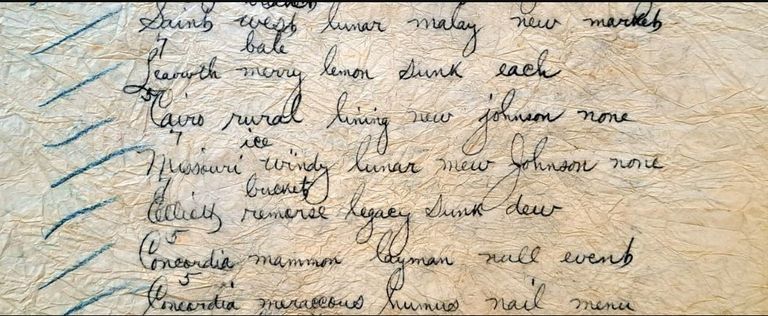 Saint west lunar malay new market
7 bale
Leavwth merry lemon sunk each
5
Cairo rural lining new johnson none
7 ice
Missouri windy lunar mew Johnson none
1 bucket
Elliott remorse legacy sunk dew
5
Concordia mammon layman null event
5
Concordia meraccous humus nail menu